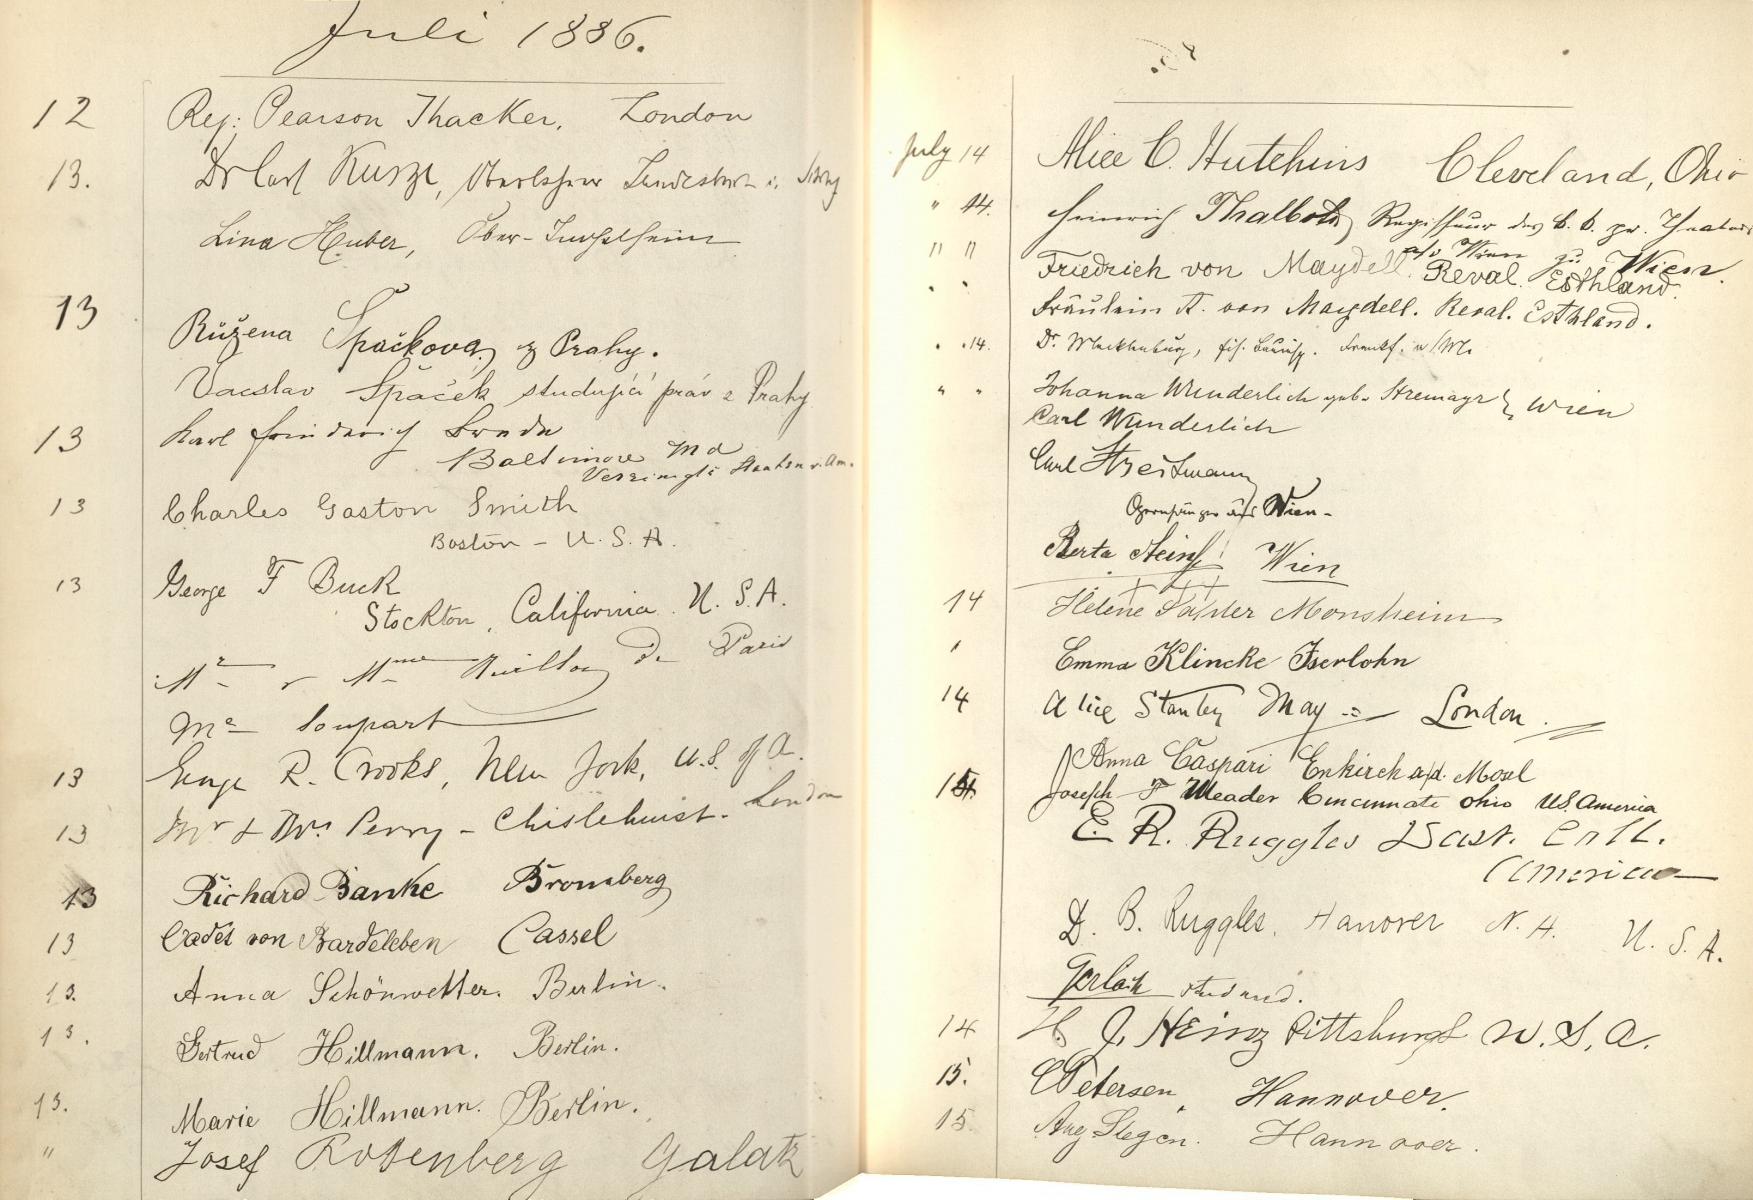 Juli 1886.
12 Rev: Pearson Thacker. London
13. Dr Carl Kurze,
Lina Huber, Ober-Ingelheim
13
Růžena Špačková z Prahy.
Vacslav Špaček studující práv z Prahy
13 Karl Friederich
Baltimore Md
Vereinigte Staaten v. Am.
13 Charles Gaston Smith
Boston - U.S.A.
13 George F Buck
Stockton, California. U.S.A.
Mr & Mme de Paris
Me Soupart
13 George R. Crooks, New York, U.S. of A.
13 Mr & Mrs Perry - Chislehurst - London
13 Richard Banke Bromberg
13 Cadet von Bardeleben Cassel
13. Anna Schönwetter. Berlin.
13. Gertrud Hillmann. Berlin.
13. Marie Hillmann. Berlin.
" Josef Rosenberg Galatz
July 14 Alice C. Hutchins Cleveland, Ohio
" 14. Heinrich Thalboth Regisseur des k. k. pr. Theaters
a/d Wien zu Wien.
" " Friedrich von Maydell. Reval. Esthland.
" " Fräulein A. von Maydell. Reval. Esthland.
" 14. Dr. Mecklenburg, Frankf. a/M.
" " Johanna Wunderlich geb. Stremayr } Wien
Carl Wunderlich
Carl Streitmann
Opernsänger aus Wien -
Berta Wien
14 Helene Monsheim
" Emma Klincke Iserlohn
14 Alice Stanley May London.
Anna Caspari Enkirch a/d. Mosel
14 Joseph F Meader Cincinnati Ohio U.S. America
E. R. Ruggles Dart. Coll.
America
D. B. Ruggles, Hanover N. H. U. S. A.
Gerlach stud med.
14 H. J. Heinz Pittsburgh U. S. A.
15. C Petersen, Hannover.
15 Aug Stegen. Hannover.